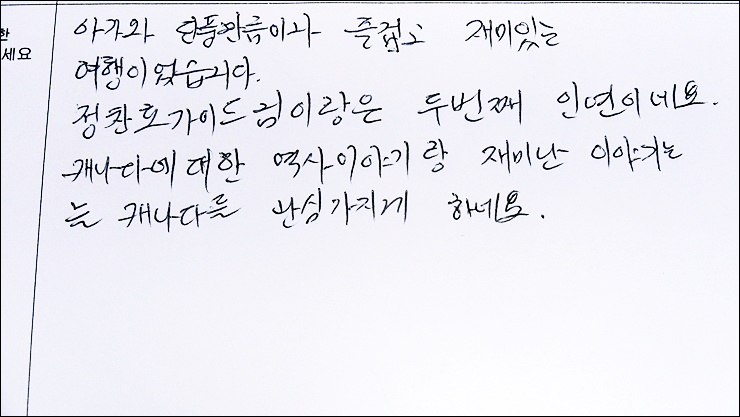 한
세요
아가와 단풍만큼이나 즐겁고 재미있는
여행이었습니다.
정찬호가이드님이랑은 두번째 인연이네요.
캐나다에대한 역사이야기랑 재미난 이야기는
늘 캐나다를 관심가지게 하네요.